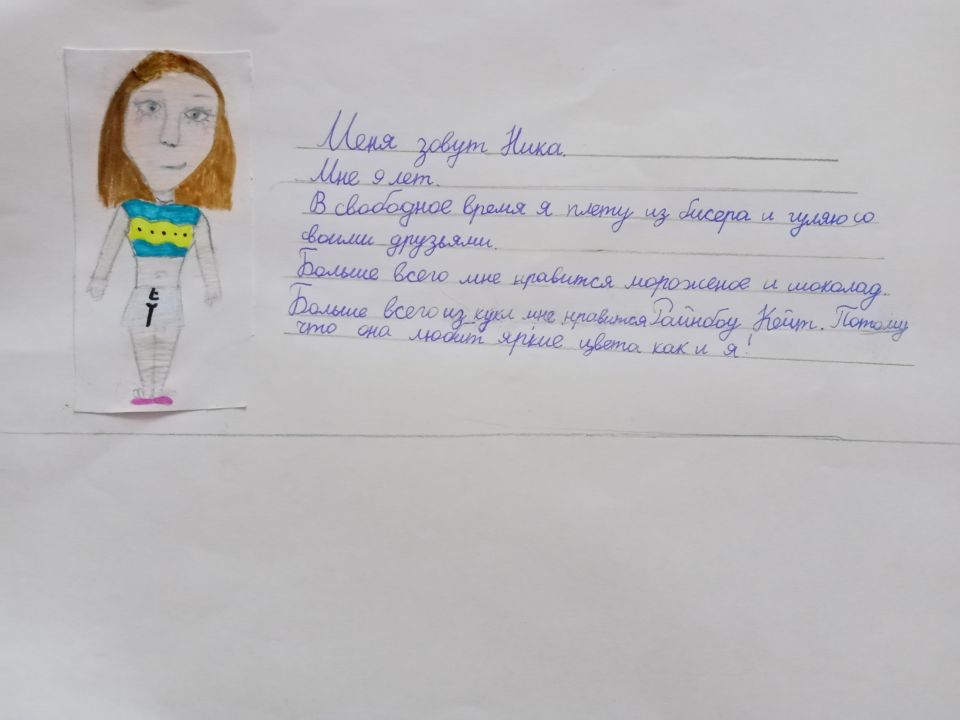 Меня зовут Ника.
Мне 9 лет.
В свободное время я плету из бисера и гуляю со
своими друзьями.
Больше всего мне нравится мороженое и шоколад.
Больше всего из кукл мне нравится Райнбоу Кейт. Потому
что она любит яркие цвета как и я!